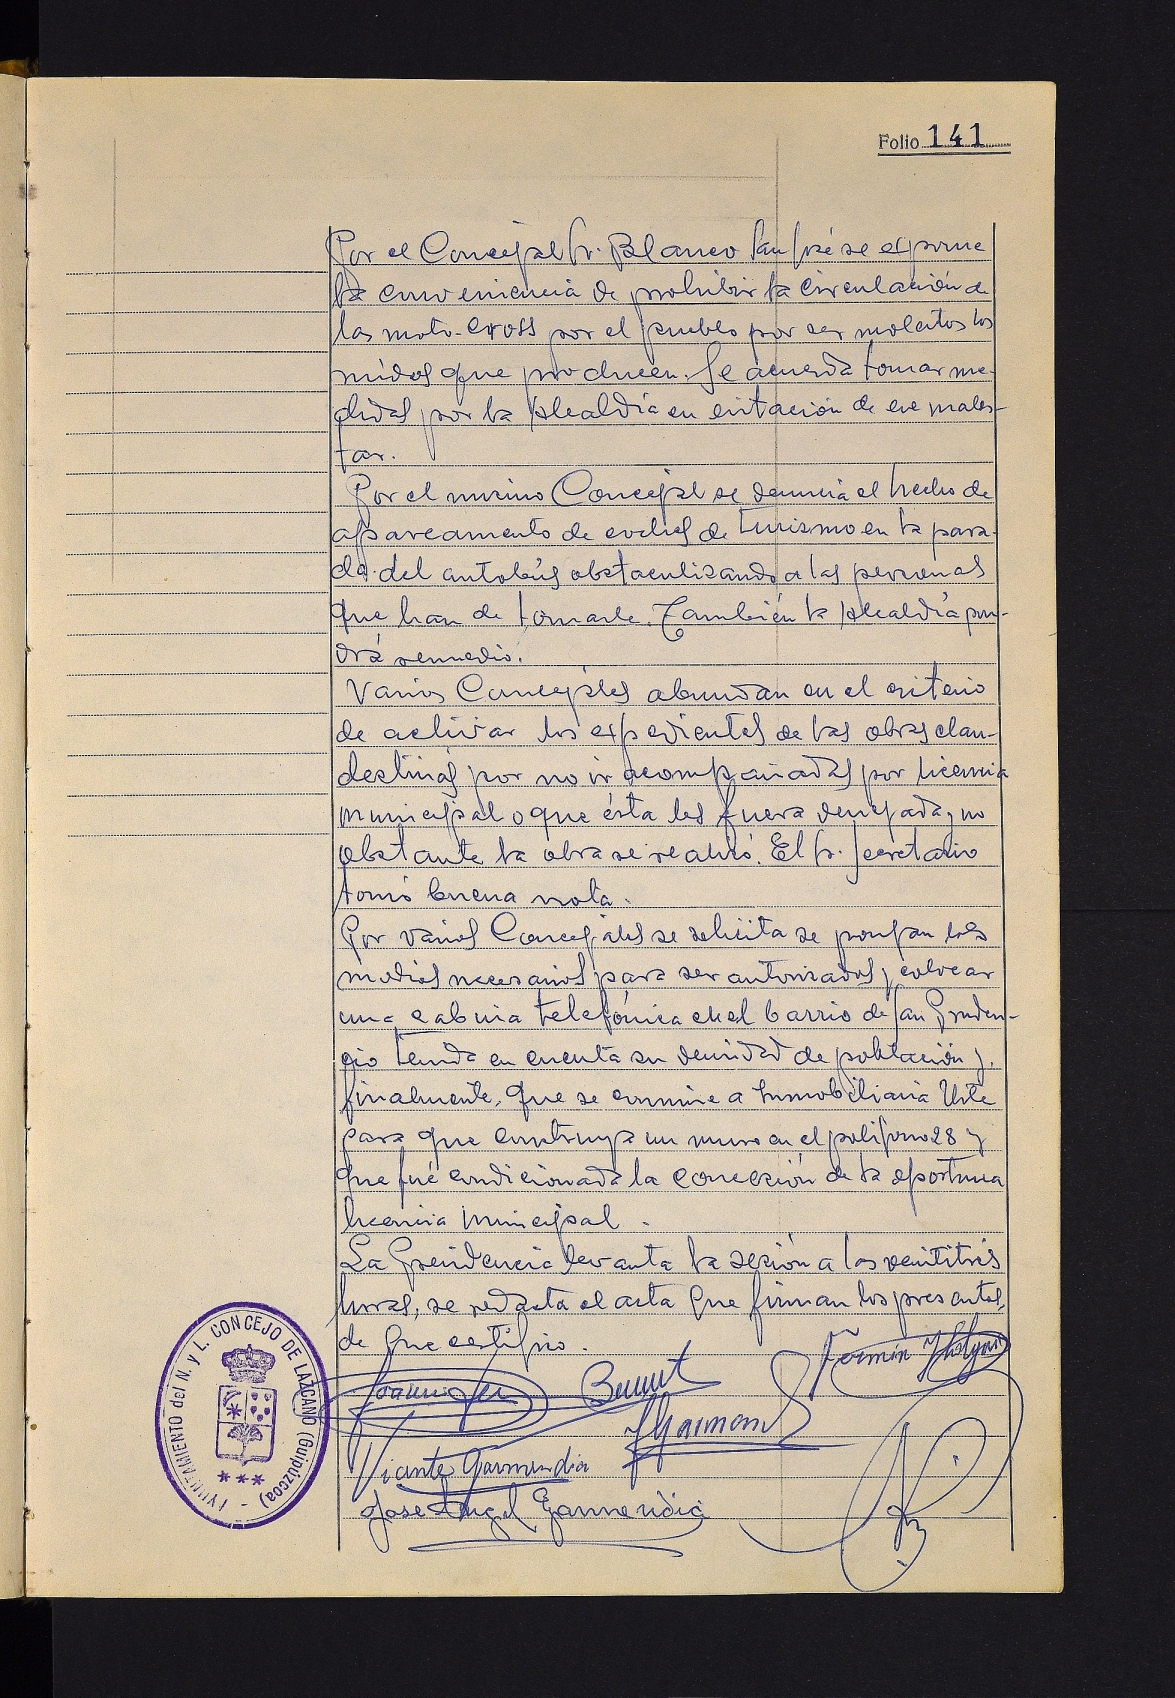 Folio 141
Por el Concejal Sr. Blanco San José se expone
la conveniencia de prohibir la circulación de
las moto-cross por el pueblo por ser molestos los
ruidos que producen. Se acuerda tomar me-
didas por la Alcaldía en evitación de ese males-
tar.
Por el mismo Concejal se denuncia el hecho de
aparcamento de coches de turismo en la para-
da del autobús obstaculizando a las personas
que han de tomarle. También la Alcaldía pon-
drá remedio.
Varios Concejales abundan en el criterio
de activar los expedientes de las obras clan-
destinas por no ir acompañadas por licencia
municipal o que ésta les fuera denegada y no
obstante la obra se realizó. El Sr. Secretario
tomó buena nota.
Por varios Concejales se solicita se pongan los
medios necesarios para ser autorizados y colocar
una cabina telefónica en el barrio de San Pruden-
cio tenida en cuenta su densidad de población y,
finalmente, que se conmine a Inmobiliaria Urte
para que construya un muro en el polígono 28 y
que fué condicionada la concesión de la oportuna
licencia municipal.
La Presidencia levanta la sesión a las veintitrés
horas, se redacta el acta que firman los presentes,
de que certifico.
Fermín
Vicente Garmendia
Jose Angel Garmendia
AYUNTAMIENTO del N. y L. CONCEJO DE LAZCANO (Guipúzcoa)